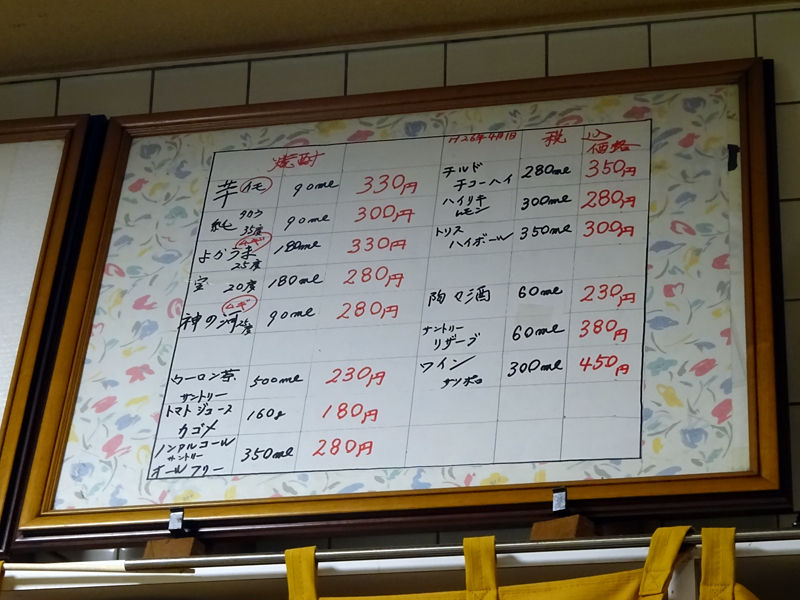 焼酎
芋 イモ 90ml 330円
純 タカラ 35度 90ml 300円
よかうま ムギ 25度 180ml 330円
宝 20度 180ml 280円
神の河 ムギ 25度 90ml 280円
ウーロン茶 サントリー 500ml 230円
トマトジュース カゴメ 160g 180円
ノンアルコール サントリー オールフリー 350ml 280円
H26年4月1日 税 込 価格
チルド チューハイ 280ml 350円
ハイリキ レモン 300ml 280円
トリス ハイボール 350ml 300円
陶々酒 60ml 230円
サントリー リザーブ 60ml 380円
ワイン サッポロ 300ml 450円